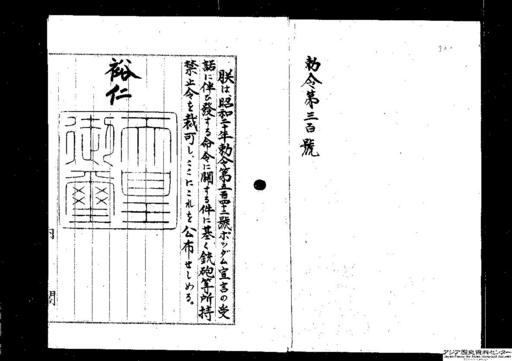 勅令第三百號
朕は昭和二十年勅令第五百四十二號ポツダム宣言の受
諾に伴ひ發する命令に關する件に基く銃砲等所持
禁止令を裁可し、ここにこれを公布せしめる。
裕仁
天皇
御璽
内閣
アジア歴史資料センター